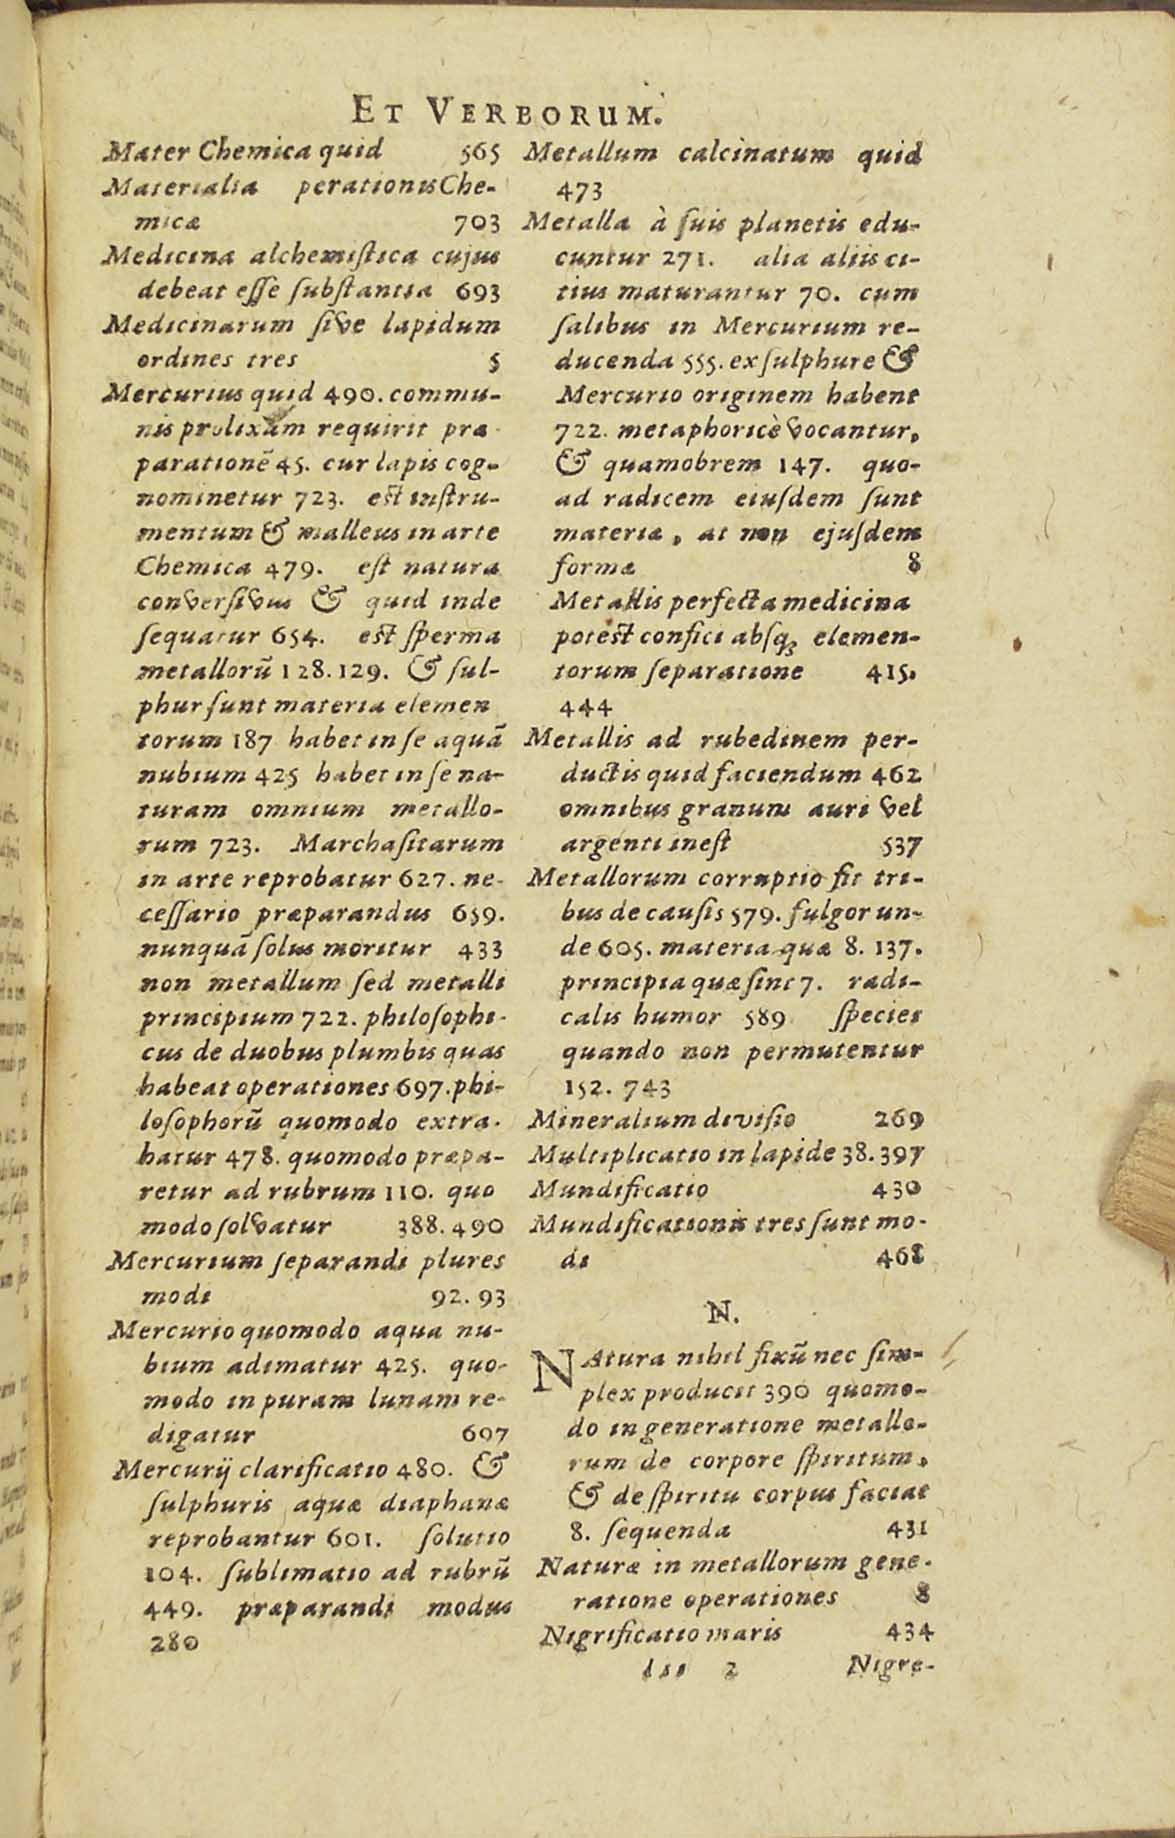 ET VERBORUM.
Mater Chemica quid 565
Materialia perationis Che-
micæ 703
Medicina alchemistica cujus
debeat esse substantia 693
Medicinarum sive lapidum
ordines tres 5
Mercurius quid 490. commu-
nis prolixam requirit præ
parationē 45. cur lapis cog-
nominetur 723. est instru-
mentum & malleus in arte
Chemica 479. est natura
conversivus & quid inde
sequatur 654. est sperma
metallorū 128. 129. & sul-
phur sunt materia elemen
torum 187 habet in se aquā
nubium 425 habet in se na-
turam omnium metallo-
rum 723. Marchasitarum
in arte reprobatur 627. ne-
cessario præparandus 659.
nunquā solus moritur 433
non metallum sed metalli
principium 722. philosophi-
cus de duobus plumbis quas
habeat operationes 697. phi-
losophorū quomodo extra-
hatur 478. quomodo præpa-
retur ad rubrum 110. quo
modo solvatur 388. 490
Mercurium separandi plures
modi 92. 93
Mercurio quomodo aqua nu-
bium adimatur 425. quo-
modo in puram lunam re-
digatur 607
Mercurij clarificatio 480. &
sulphuris aquæ diaphanæ
reprobantur 601. solutio
104. sublimatio ad rubrū
449. præparandi modus
280
Metallum calcinatum quid
473
Metalla à suis planetis edu-
cuntur 271. alia aliis ci-
tius maturantur 70. cum
salibus in Mercurium re-
ducenda 555. ex sulphure &
Mercurio originem habent
722. metaphoricè vocantur,
& quamobrem 147. quo-
ad radicem eiusdem sunt
materiæ, at non ejusdem
formæ 8
Metallis perfecta medicina
potest confici absq; elemen-
torum separatione 415.
444
Metallis ad rubedinem per-
ductis quid faciendum 462
omnibus granum auri vel
argenti inest 537
Metallorum corruptio fit tri-
bus de causis 579. fulgor un-
de 605. materia quæ 8. 137.
principia quæ sint 7. radi-
calis humor 589 species
quando non permutentur
152. 743
Mineralium divisio 269
Multiplicatio in lapide 38. 397
Mundificatio 430
Mundificationis tres sunt mo-
di 468
N.
NAtura nihil fixū nec sim-
plex producit 390 quomo-
do in generatione metallo-
rum de corpore spiritum,
& de spiritu corpus faciat
8. sequenda 431
Naturæ in metallorum gene-
ratione operationes 8
Nigrificatio maris 434
Iii 2 Nigre-